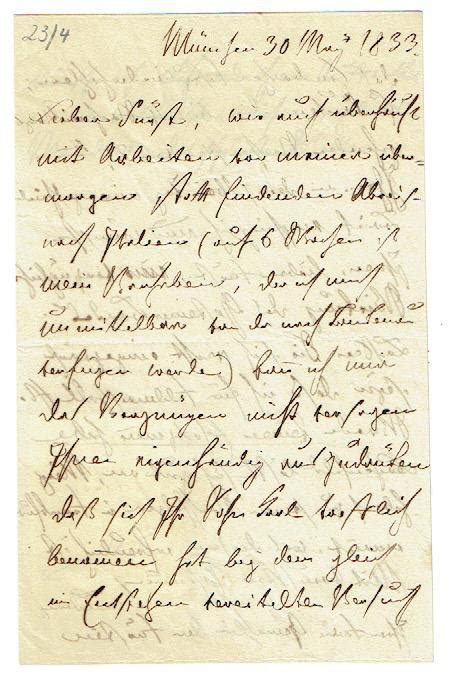 23/4
München 30 May 1833.
Lieber Fürst, wie auch überhäuft
mit Arbeiten vor meiner über-
morgen statt findenden Abreise
nach Italien (auf 6 Wochen ist
mein Vorhaben, da ich mich
unmittelbar von da nach
verfügen werde) kann ich mir
das Vergnügen nicht versagen
Ihnen eigenhändig auszudrücken
daß sich Ihr Sohn Carl trefflich
benommen hat bey dem gleich
im Entstehen vereitelten Versuch